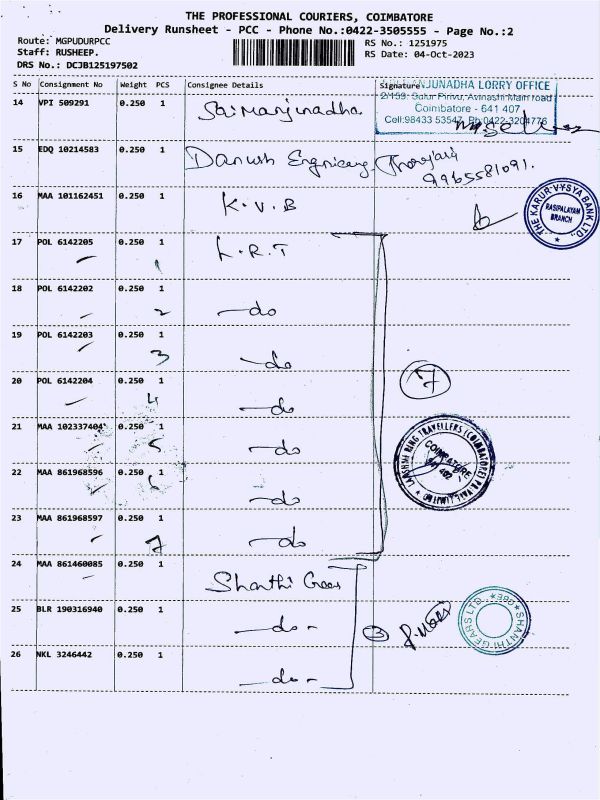 THE PROFESSIONAL COURIERS, COIMBATORE
Delivery Runsheet - PCC - Phone No.:0422-3505555 - Page No.:2
Route: MGPUDURPCC
Staff: RUSHEEP.
DRS No.: DCJB125197502
RS No.: 1251975
RS Date: 04-Oct-2023
S No Consignment No Weight PCS Consignee Details Signature
JUNADHA LORRY OFFICE
2/159, Sulur Pirivu, Avinashi Main road
Coimbatore - 641 407
Cell:98433 53547, Ph:0422-3204776
14 VPI 509291 0.250 1 Sai Manjunadha
15 EDQ 10214583 0.250 1 Danush
9965581091.
16 MAA 101162451 0.250 1 K.V.B
THE KARUR VYSYA BANK LTD.,
RASIPALAYAM
BRANCH
17 POL 6142205 0.250 1 L.R.T
1
18 POL 6142202 0.250 1 -do
2
19 POL 6142203 0.250 1 -do
3
20 POL 6142204 0.250 1 -do
4
7
21 MAA 102337404 0.250 1 -do
5
LAKSHMI RING TRAVELLERS (COIMBATORE) PRIVATE LIMITED
COIMBATORE
641 402
22 MAA 861968596 0.250 1 -do
6
23 MAA 861968597 0.250 1 -do
7
24 MAA 861460085 0.250 1 Shanthi Gears
25 BLR 190316940 0.250 1 -do-
3
SHANTHI GEARS LTD.
26 NKL 3246442 0.250 1 -do-